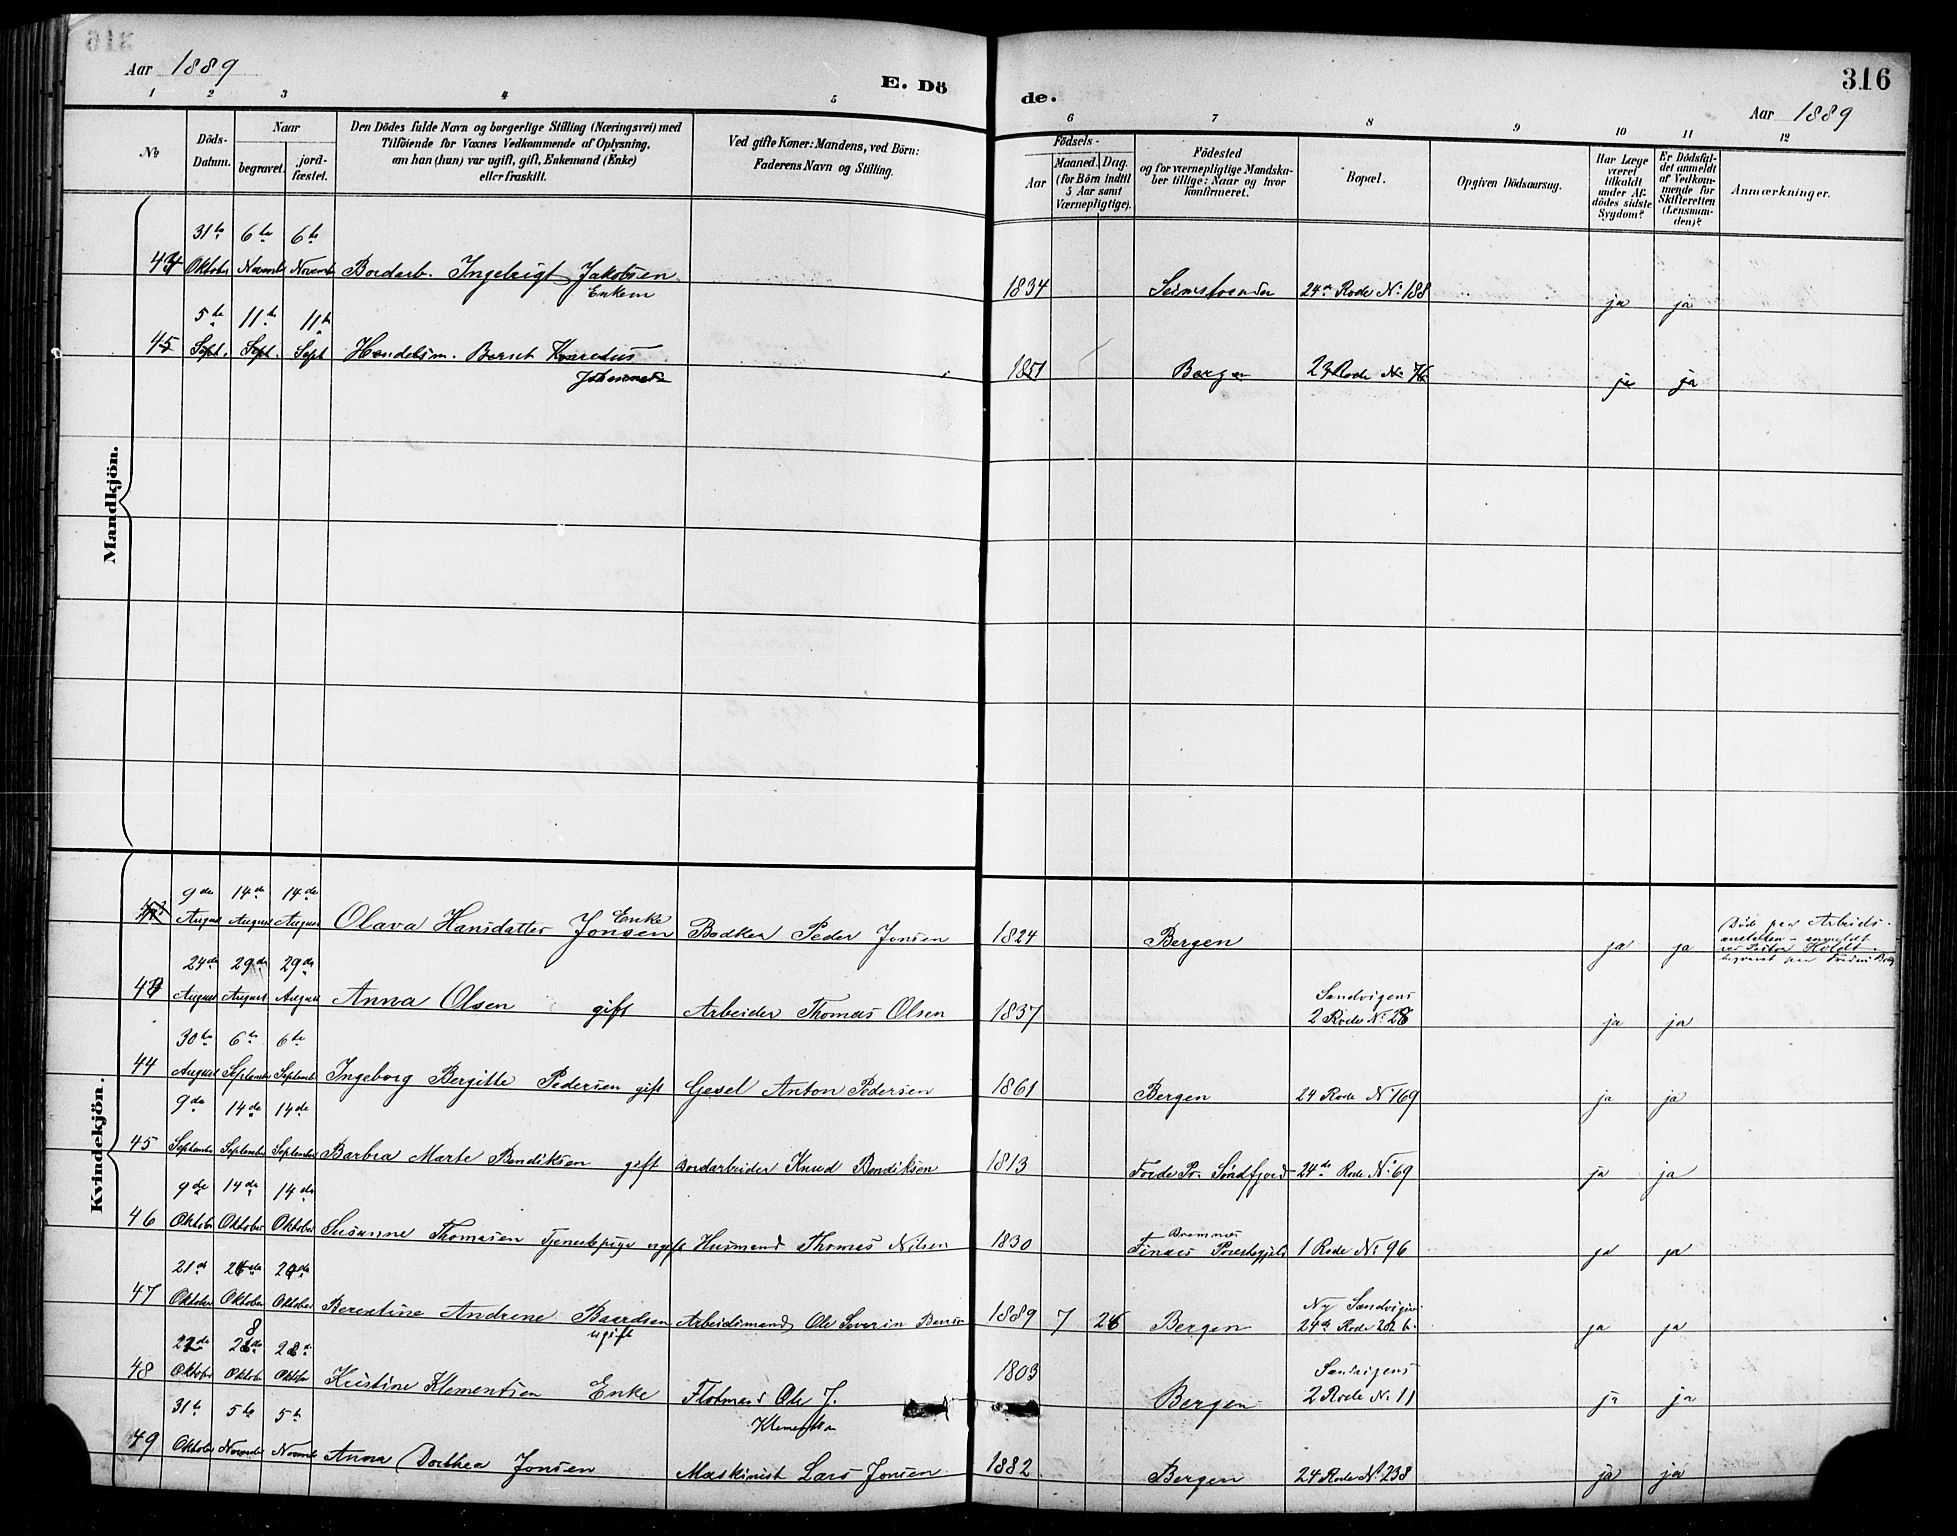 Aar 1889
E. Dö
de.
316
Aar 1889
1 2 3 4 5 6 7 8 9 10 11 12
No
Döds-Datum.
Naar
begravet.
jord-fæstet.
Den Dödes fulde Navn og borgerlige Stilling (Næringsvei) med
Tilföiende for Voxnes Vedkommende af Oplysning,
om han (hun) var ugift, gift, Enkemand (Enke)
eller fraskilt.
Ved gifte Koner: Mandens, ved Börn:
Faderens Navn og Stilling.
Födsels-
Aar
Maaned. Dag.
(for Börn indtil
5 Aar samt
Værnepligtige).
Födested
og for værnepligtige Mandska-
ber tillige: Naar og hvor
konfirmeret.
Bopæl.
Opgiven Dödsaarsag.
Har Læge
været
tilkaldt
under Af-
dödes sidste
Sygdom?
Er Dödsfal-
det anmeldt
af Vedkom-
mende for
Skifteretten
(Lensman-
den)?
Anmærkninger.
Mandkjön.
31te 6te 6te
44 Oktober Novemb Novemb Bordarb. Ingebrigt Jakobsen
Enkem
1834 24de Rode No 188 ja ja
5te 11te 11te
45 Sept. Sept. Sept Bernt
Johannes
1851 Bergen No 76 ja ja
Kvindekjön.
9de 14de 14de
August August August Olava Hansdatter Jonsen Enke Bødker Peder Jonsen 1824 Bergen ja ja
Død paa Arbeids-
anstalten - anmeldt
Holdt.
begravet paa
24de 29de 29de
43 August August August Anna Olsen gift Arbeider Thomas Olsen 1837 Sandvigens
2 Rode No 28 ja ja
30te 6te 6te
44 August September September Ingeborg Bergitte Pedersen gift Gesel Anton Pedersen 1861 Bergen 24 Rode No 169 ja ja
9de 14de 14de
45 September September September Barbra Marte Bendiksen gift Bordarbeider Knud Bendiksen 1813 Førde Pr. Søndfjord 24de Rode No 69 ja ja
9de 14de 14de
46 Oktober Oktober Oktober Susanne Thomasen Tjenestepige ugift Husmand Thomas Nilsen 1830 Bremnes
Finaas Præstegjeld 1 Rode No 96 ja ja
21de 26de
47 Oktober Oktober Oktober Berentine Andrine Baardsen
ugift
Arbeidsmand Ole Severin 1889 7 26 Bergen Ny Sandvigs
24de Rode 202 b. ja ja
22de 28de 28de
48 Oktober Oktober Oktober Kristine Klementsen Enke Flotmand Ole J.
Klementsen
1803 Bergen Sandvigens
2 Rode No 11 ja ja
31te 5te 5te
49 Oktober November November Anna Dorthea Jonsen Maskinist Lars Jonsen 1882 Bergen 24 Rode No 238 ja ja